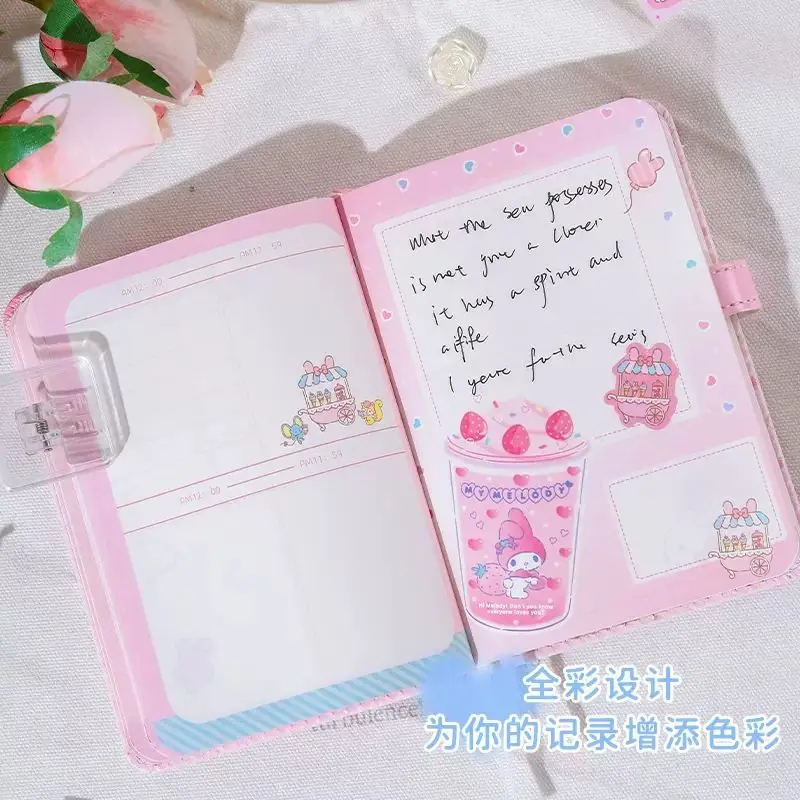 AM12: 00 AM11: 59
AM12: 00 AM11: 59
What the sea possesses
is not you a
it has a spirit and
a life
I for the
MY MELODY
Hi Melody! Don't you know
everyone loves you?
turbulence
全彩设计
为你的记录增添色彩